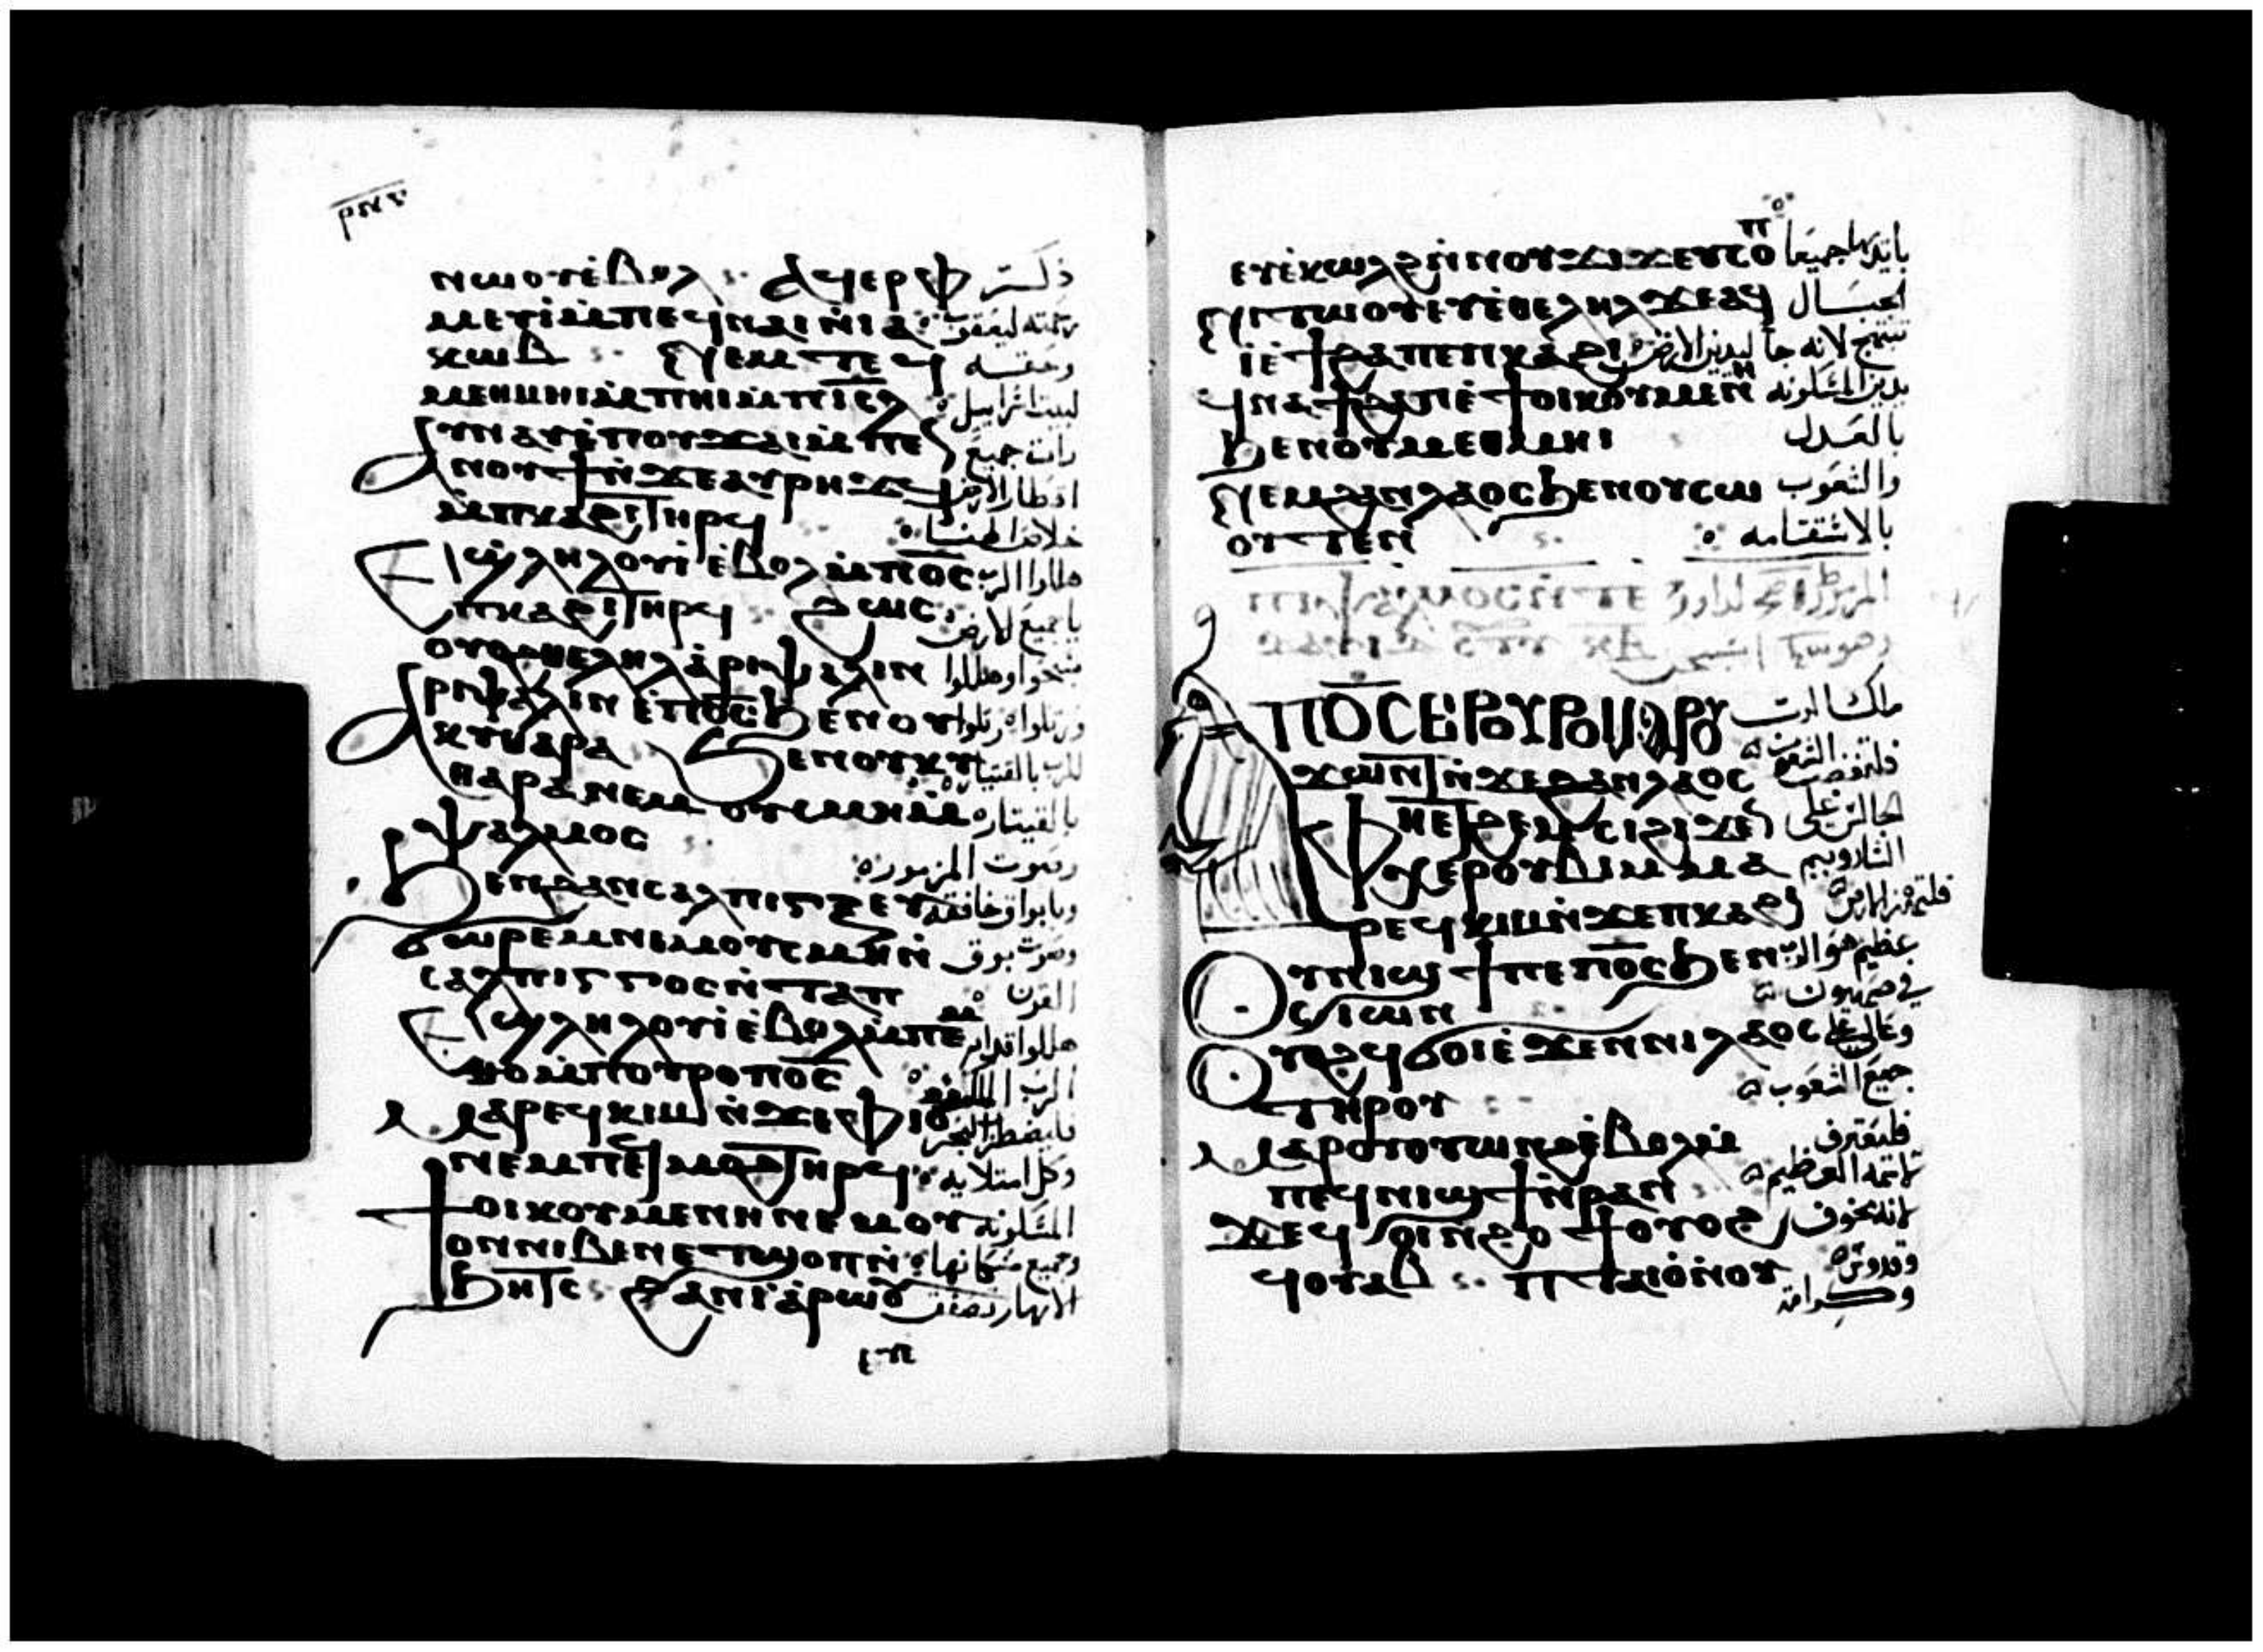 ⲣⲛⲋ
ⲛⲱⲟⲩⲉⲃⲟⲗ ⲁϥⲉⲣⲫ ذكر
ⲙⲉⲩⲓⲙⲡⲉϥⲛⲁⲓⲛⲓⲁ رحمته ليعقوب
ⲕⲱⲃ ⲛⲉⲙⲧⲉϥ وحقه
ⲙⲉⲑⲙⲏⲓⲙⲡⲏⲓⲙⲡⲓⲥⲗ لبيت اسراييل
ⲁⲩⲛⲁⲩⲉⲡⲟⲩϫⲁⲓⲙⲡⲉ رات جميع
ⲛⲟⲩϯⲛϫⲉⲁⲩⲣⲏϫϥ اقطار الارض
ⲙⲡⲕⲁϩⲓⲧⲏⲣϥ خلاص الهنا
ⲉϣⲗⲏⲗⲟⲩⲓⲉⲃⲟⲗⲙⲡⲟⲥ هللوا للرب
ⲡⲕⲁϩⲓⲧⲏⲣϥ ϩⲱⲥ يا جميع الارض
ⲟⲩⲟϩⲑⲉⲗⲏⲗⲁⲣⲓⲯⲁⲗⲓⲛ سبحوا وهللوا
ⲁⲣⲓⲯⲁⲗⲓⲛⲉⲡⲟⲥϧⲉⲛⲟⲩ ورتلوا رتلوا
ⲕⲩⲑⲁⲣⲁ ϧⲉⲛⲟⲩⲕⲩ للرب بالقيتاره
ⲑⲁⲣⲁⲛⲉⲙⲟⲩⲥⲙⲏⲙ بالقيتاره
ⲯⲁⲗⲙⲟⲥ وصوت المزمور
ϧⲉⲛϩⲁⲛⲥⲁⲗⲡⲓⲅⲅⲉⲩ وبابواق خافقه
ϭⲱⲣⲉⲙⲛⲉⲙⲟⲩⲥⲙⲏⲛ وصوت بوق
ⲥⲁⲗⲡⲓⲅⲅⲟⲥⲛⲧⲁⲡ القرن
ⲉϣⲗⲏⲗⲟⲩⲓⲉⲃⲟⲗⲙⲡⲉⲙ هللوا قدام
ⲑⲟⲙⲡⲟⲩⲣⲟⲡⲟⲥ الرب الملك
ⲙⲁⲣⲉϥⲕⲓⲙⲛϫⲉⲫⲓⲟ فليضطرب البحر
ⲛⲉⲙⲡⲉϥⲙⲟϩⲧⲏⲣϥ وكل امتلايه
ϯⲟⲓⲕⲟⲩⲙⲉⲛⲏⲛⲉⲙⲟⲩ المسكونه
ⲟⲛⲛⲓⲃⲉⲛⲉⲧϣⲟⲡⲛ وجميع سكانها
ϧⲏⲧⲥ ϩⲁⲛⲓⲁⲣⲱⲟⲩ الانهار تصفق
ⲉⲩⲉⲕⲱⲗϩⲛⲛⲟⲩϫⲓϫⲉⲩⲥⲟⲡ بايديها جميعا
ⲛⲓⲧⲱⲟⲩⲉⲩⲉⲑⲉⲗⲏⲗϫⲉⲁϥ الجبال
ⲓⲉϯϩⲁⲡⲉⲡⲕⲁϩⲓ تبتهج لانه جا ليدين الارض
ϥⲛⲁϯϩⲁⲡⲉϯⲟⲓⲕⲟⲩⲙⲉⲛⲏ يدين المسكونه
ϧⲉⲛⲟⲩⲙⲉⲑⲙⲏⲓ بالعدل
ⲛⲉⲙϩⲁⲛⲗⲁⲟⲥϧⲉⲛⲟⲩⲥⲱ والشعوب
ⲟⲩⲧⲉⲛ بالاستقامه
ⲡⲟⲥⲉⲣⲟⲩⲣⲟⲙⲁⲣⲟⲩ ملك الرب
ϫⲱⲛⲧⲛϫⲉϩⲁⲛⲗⲁⲟⲥ فلتغضب الشعوب
ⲫⲏⲉⲧϩⲉⲙⲥⲓϩⲓϫⲉ الجالس على
ⲛⲓⲭⲉⲣⲟⲩⲃⲓⲙⲙⲁ الشاروبيم
ⲣⲉϥⲕⲓⲙⲛϫⲉⲡⲕⲁϩⲓ فلتهتز الارض
ⲟⲩⲛⲓϣϯⲡⲉⲡⲟⲥϧⲉⲛ عظيم هو الرب
ⲥⲓⲱⲛ في صهيون
ⲟⲩⲟϩϥϭⲟⲥⲓⲉϫⲉⲛⲛⲓⲗⲁⲟⲥ وعالي على
ⲧⲏⲣⲟⲩ جميع الشعوب
ⲙⲁⲣⲟⲩⲟⲩⲱⲛϩⲉⲃⲟⲗⲙ فليعترف
ⲡⲉϥⲛⲓϣϯⲛⲣⲁⲛ لاسمه العظيم
ϫⲉϥⲟⲓⲛϩⲟϯⲟⲩⲟϩ لانه مخوف
ϥⲟⲩⲁⲃ ⲡⲧⲁⲓⲟⲛⲟⲩ وقدوس وكرامة